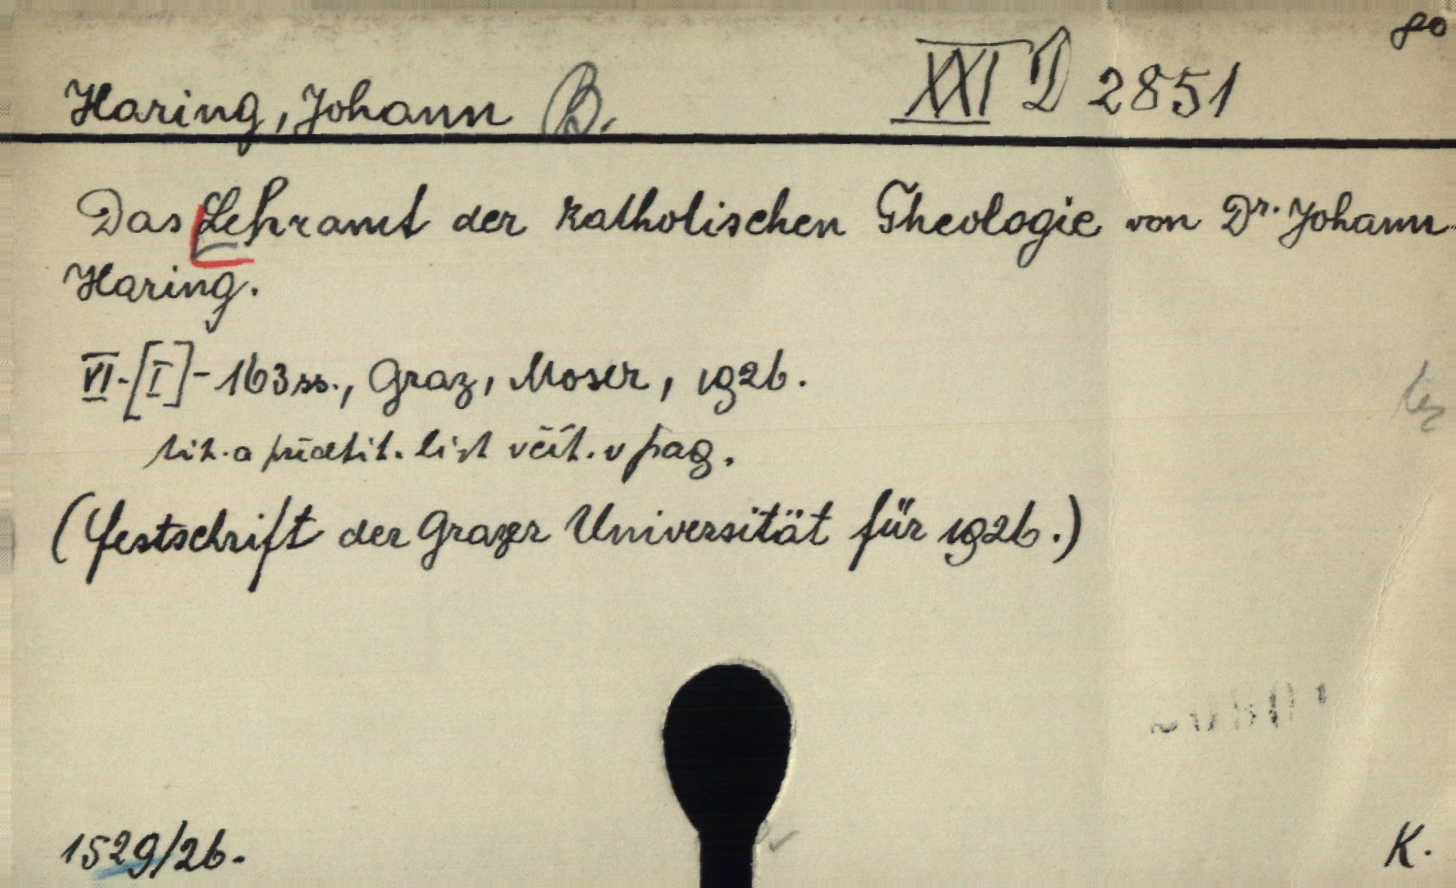 8°
Haring, Johann B. XXI D 2851
Das Lehramt der katholischen Theologie von Dr. Johann
Haring.
VI-[I]-163 ss., Graz, Moser, 1926.
tit. a předtit. list včít. v pag.
(Festschrift der Grazer Universität für 1926.)
1529/26.
K.